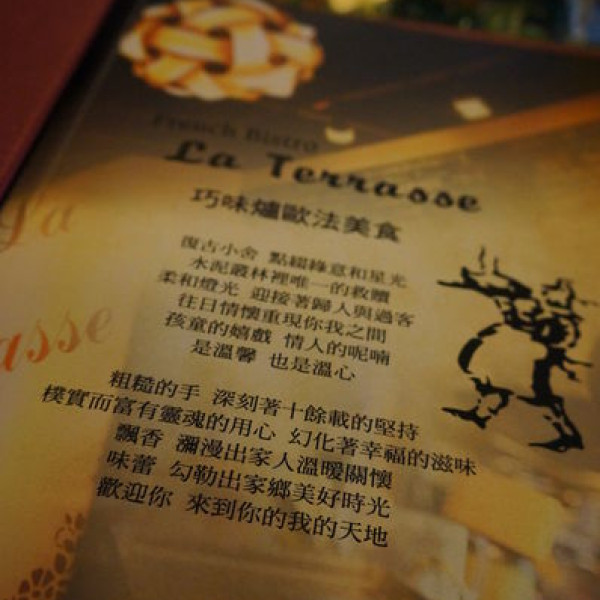 French Bistro
La Terrasse
巧味爐歐法美食
復古小舍 點綴綠意和星光
水泥叢林裡唯一的救贖
柔和燈光 迎接著歸人與過客
往日情懷重現你我之間
孩童的嬉戲 情人的呢喃
是溫馨 也是溫心
粗糙的手 深刻著十餘載的堅持
樸實而富有靈魂的用心 幻化著幸福的滋味
飄香 瀰漫出家人溫暖關懷
味蕾 勾勒出家鄉美好時光
歡迎你 來到你的我的天地
La
asse